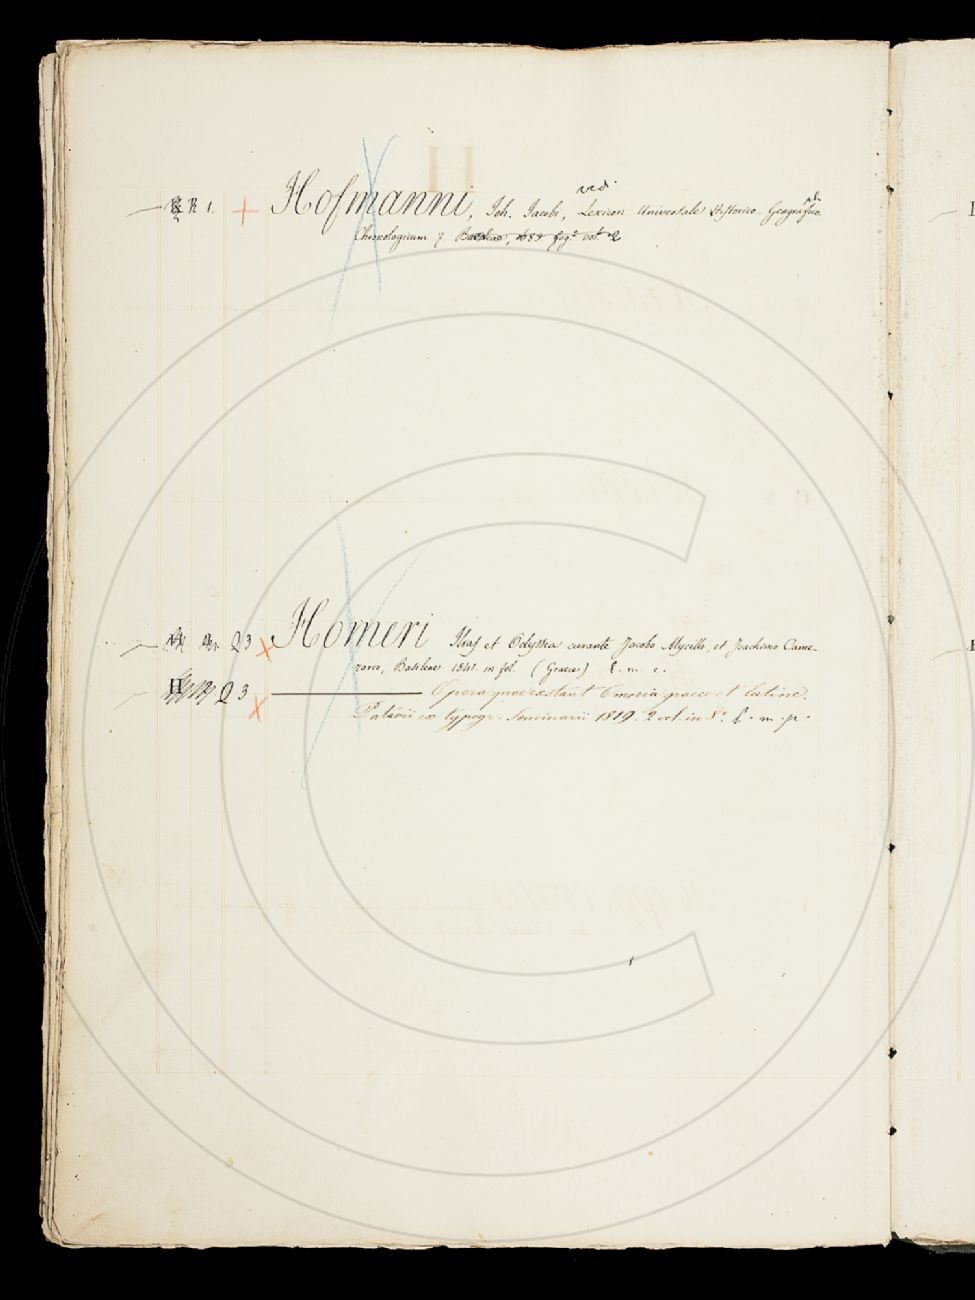 R 1. Hofmanni, Joh. Jacobi, Lexicon Universale Historico-Geografico
vedi
ph
Chronologicum. Basileae, 1683. fog.° vol. 2
Q 3 Homeri Ilias et Odyssea curante Jacobo Mycillo, et Joachimo Came-
rario, Basileae 1541. in fol. (Graece) l. m. c.
Q 3 Opera quae extant omnia graece et latine.
Patavii ex typogr. Seminarii 1819. 2 vol. in 8.° l. m. p.